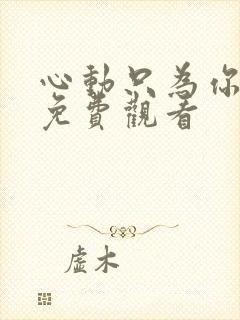 心動只為你
免費觀看
虛木